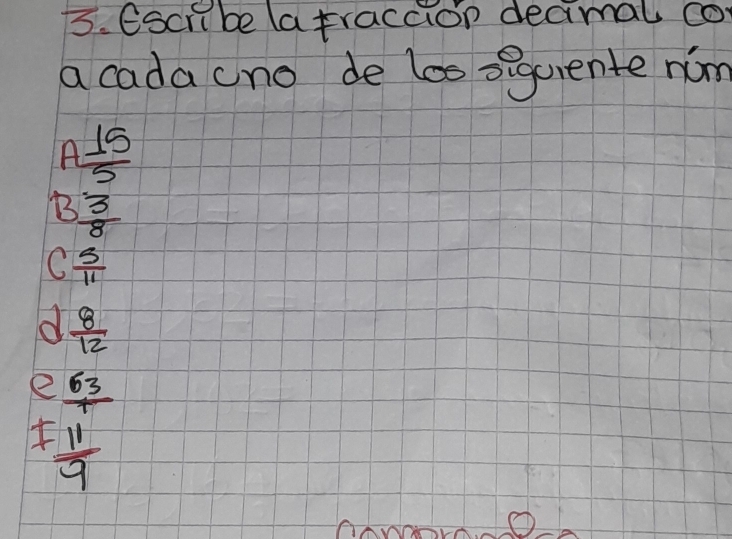 3. Escribe la fracción decimal co
a cada cno de los siguiente núm
A 15/5
B 3/8
C 5/11
d 8/12
e 63/7
f 11/9